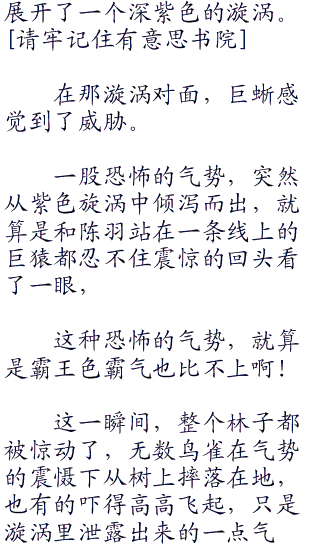 展开了一个深紫色的漩涡。
[请牢记住有意思书院]
在那漩涡对面，巨蜥感
觉到了威胁。
一股恐怖的气势，突然
从紫色旋涡中倾泻而出，就
算是和陈羽站在一条线上的
巨猿都忍不住震惊的回头看
了一眼，
这种恐怖的气势，就算
是霸王色霸气也比不上啊！
这一瞬间，整个林子都
被惊动了，无数鸟雀在气势
的震慑下从树上摔落在地，
也有的吓得高高飞起，只是
漩涡里泄露出来的一点气